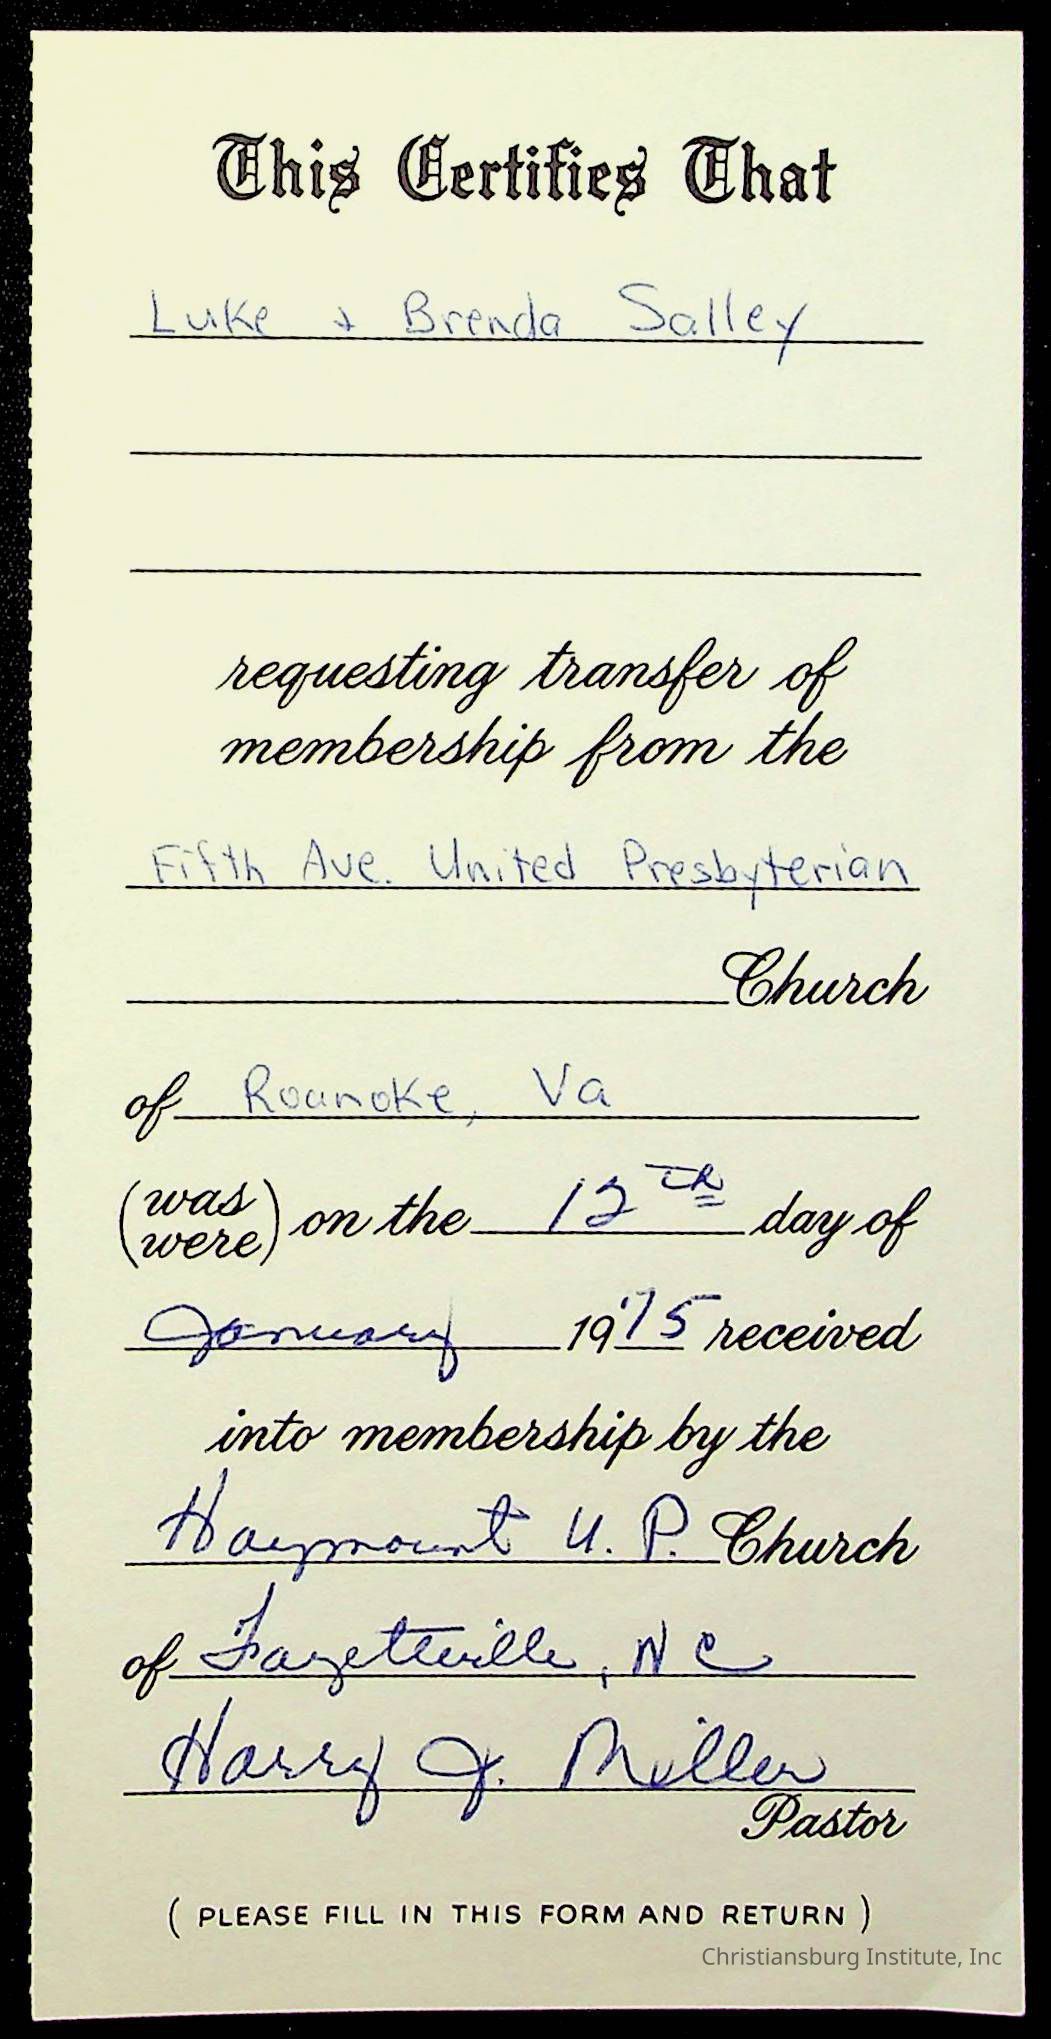 This Certifies That
Luke & Brenda Salley
requesting transfer of
membership from the
Fifth Ave. United Presbyterian
Church
of Roanoke, Va
(was were) on the 12th day of
January 19'75 received
into membership by the
Haymount U. P. Church
of Fayetteville, N C
Harry J. Miller
Pastor
( PLEASE FILL IN THIS FORM AND RETURN )
Christiansburg Institute, Inc